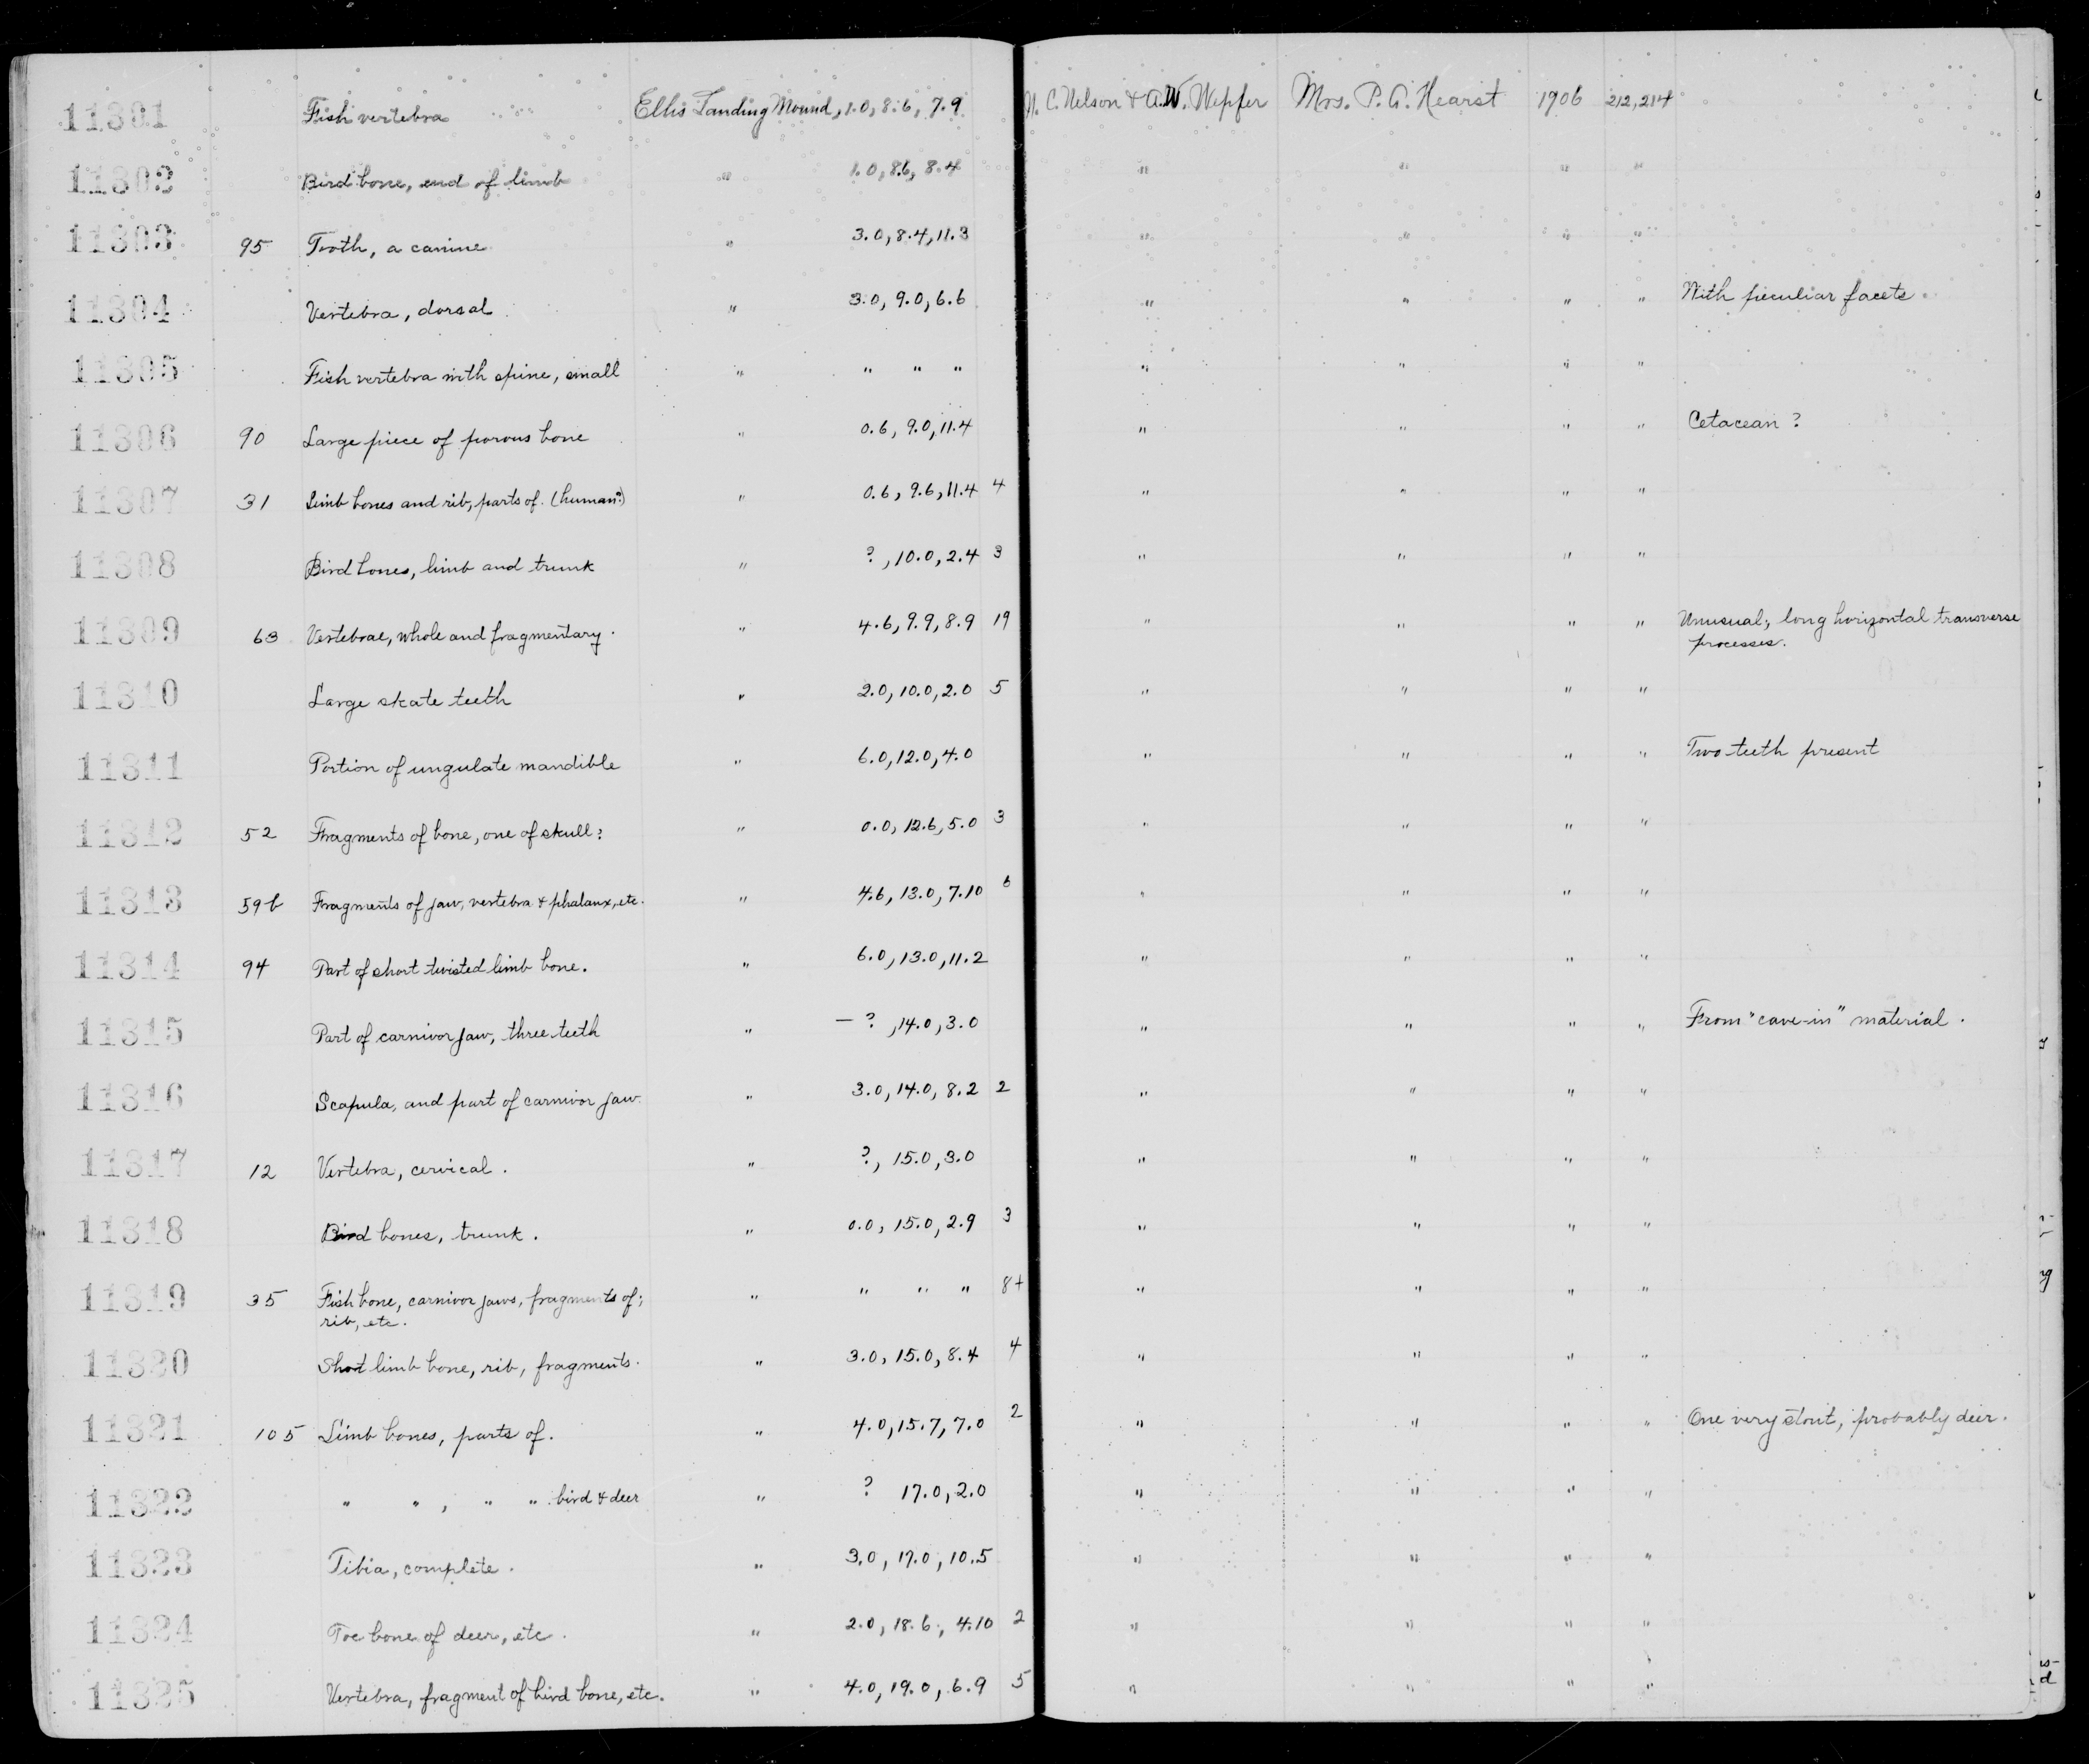 11301 Fish vertebra Ellis Landing Mound, 1.0, 8.6, 7.9 N. C. Nelson & A.W. Wepfer Mrs. P. A. Hearst 1906 212, 214
11302 Bird bone, end of limb " 1.0, 8.6, 8.4 " " " "
11303 95 Tooth, a canine " 3.0, 8.4, 11.3 " " " "
11304 Vertebra, dorsal " 3.0, 9.0, 6.6 " " " " With peculiar facets.
11305 Fish vertebra with spine, small " " " " " " " "
11306 90 Large piece of porous bone " 0.6, 9.0, 11.4 " " " " Cetacean ?
11307 31 Limb bones and rib, parts of. (human?) " 0.6, 9.6, 11.4 4 " " " "
11308 Bird bones, limb and trunk " ?, 10.0, 2.4 3 " " " "
11309 63 Vertebrae, whole and fragmentary. " 4.6, 9.9, 8.9 19 " " " " Unusual; long horizontal transverse
processes.
11310 Large skate teeth " 2.0, 10.0, 2.0 5 " " " "
11311 Portion of ungulate mandible " 6.0, 12.0, 4.0 " " " " Two teeth present
11312 52 Fragments of bone, one of skull? " 0.0, 12.6, 5.0 3 " " " "
11313 59b Fragments of jaw, vertebra & phalanx, etc. " 4.6, 13.0, 7.10 6 " " " "
11314 94 Part of short twisted limb bone. " 6.0, 13.0, 11.2 " " " "
11315 Part of carnivor jaw, three teeth " – ?, 14.0, 3.0 " " " " From "cave-in" material.
11316 Scapula, and part of carnivor jaw. " 3.0, 14.0, 8.2 2 " " " "
11317 12 Vertebra, cervical. " ?, 15.0, 3.0 " " " "
11318 Bird bones, trunk. " 0.0, 15.0, 2.9 3 " " " "
11319 35 Fish bone, carnivor jaws, fragments of; " " " " 8+ " " " "
rib, etc.
11320 Short limb bone, rib, fragments. " 3.0, 15.0, 8.4 4 " " " "
11321 105 Limb bones, parts of. " 4.0, 15.7, 7.0 2 " " " " One very stout, probably deer.
11322 " " , " " bird & deer " ? 17.0, 2.0 " " " "
11323 Tibia, complete. " 3.0, 17.0, 10.5 " " " "
11324 Toe bone of deer, etc. " 2.0, 18.6, 4.10 2 " " " "
11325 Vertebra, fragment of bird bone, etc. " 4.0, 19.0, 6.9 5 " " " "